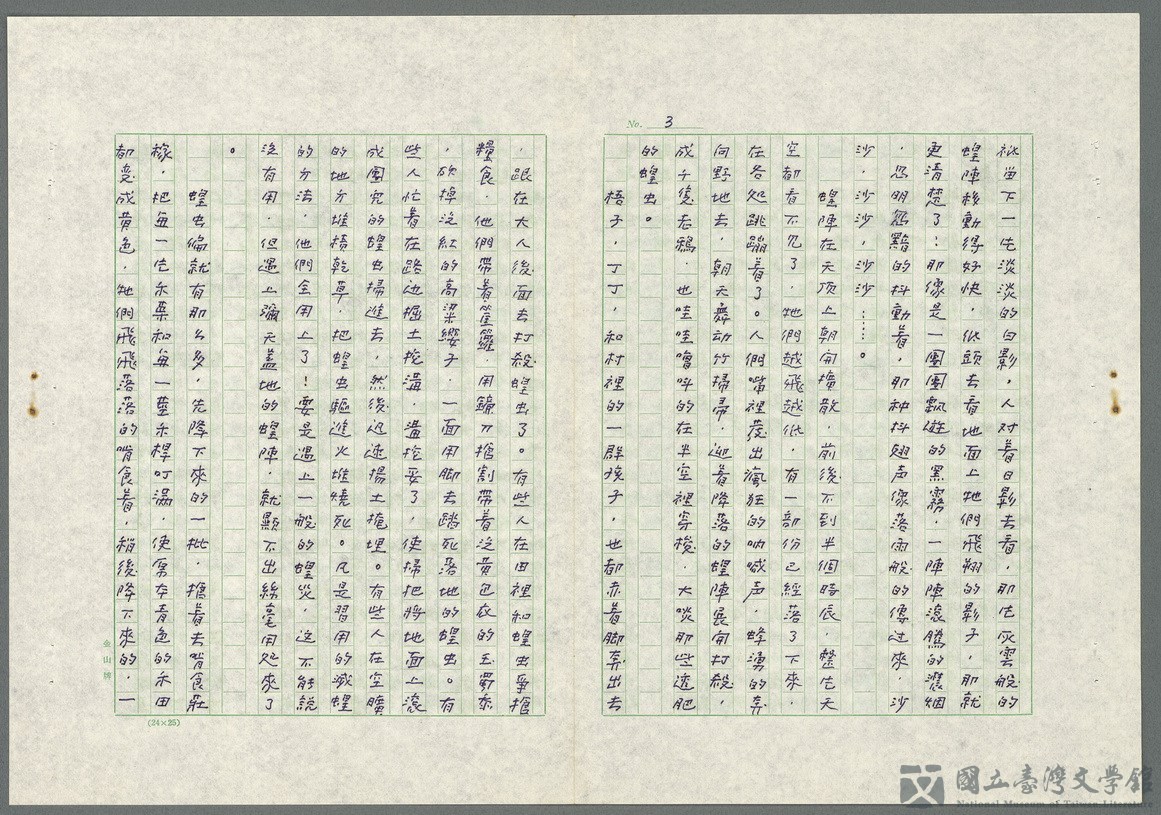 No. 3
祗留下一片淡淡的白影。人对着日影去看,那片灰雲般的
蝗陣移動得好快,低頭去看地面上牠們飛翔的影子,那就
更清楚了!那像是一團團飄遊的黑霧,一陣陣滾騰的濃烟
,忽明忽黯的抖動着,那种抖翅声像落雨般的傳过來,沙
沙,沙沙沙,沙沙……。
蝗陣在天顶上朝开擴散,前後不到半個時辰,整片天
空都看不見了,牠們越飛越低,有一部份已經落了下來,
在各処跳蹦着了。人們嘴裡發出瘋狂的吶喊声,蜂湧的奔
向野地去,朝天舞动竹掃帚,迎着降落的蝗陣展開打殺,
成千後老鴉,也哇哇嚕叫的在半空裡穿梭,大啖那些透肥
的蝗虫。
梧子,丁丁,和村裡的一群孩子,也都赤着脚奔出去
,跟在大人後面去打殺蝗虫了。有些人在田裡和蝗虫爭搶
糧食,他們帶着筐籮,用鐮刀搶割帶着沒黃包衣的玉蜀黍
,砍掉沒紅的高粱纓子,一面用脚去踏死落地的蝗虫。有
些人忙着在路边掘土挖溝,溝挖妥了,使掃把將地面上滾
成團兒的蝗虫掃進去,然後迅速揚土掩埋。有些人在空曠
的地方堆積乾草,把蝗虫驅進火堆燒死。凡是習用的滅蝗
的方法,他們全用上了!要是遇上一般的蝗災,这不能說
沒有用,但遇上瀰天蓋地的蝗陣,就顯不出絲毫用処來了
。
蝗虫偏就有那么多,先降下來的一批,搶着去啃食莊
稼,把每一片禾葉和每一莖禾桿叮滿,使原本青色的禾田
都变成黄色,牠們飛飛落落的啃食着,稍後降下來的,一
金山牌
(24×25)
國立臺灣文學館
National Museum of Taiwan Literature